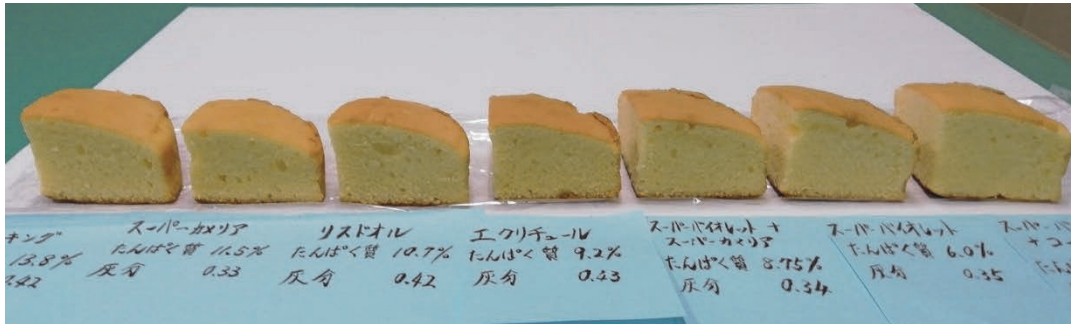 キング
13.8%
0.42
スーパーカメリア
たんぱく質 11.5%
灰分 0.33
リスドオル
たんぱく質 10.7%
灰分 0.42
エクリチュール
たんぱく質 9.2%
灰分 0.43
スーパーバイオレット +
スーパーカメリア
たんぱく質 8.75%
灰分 0.34
スーパーバイオレット
たんぱく質 6.0%
灰分 0.35
スーパーバ
+コー
たんぱ